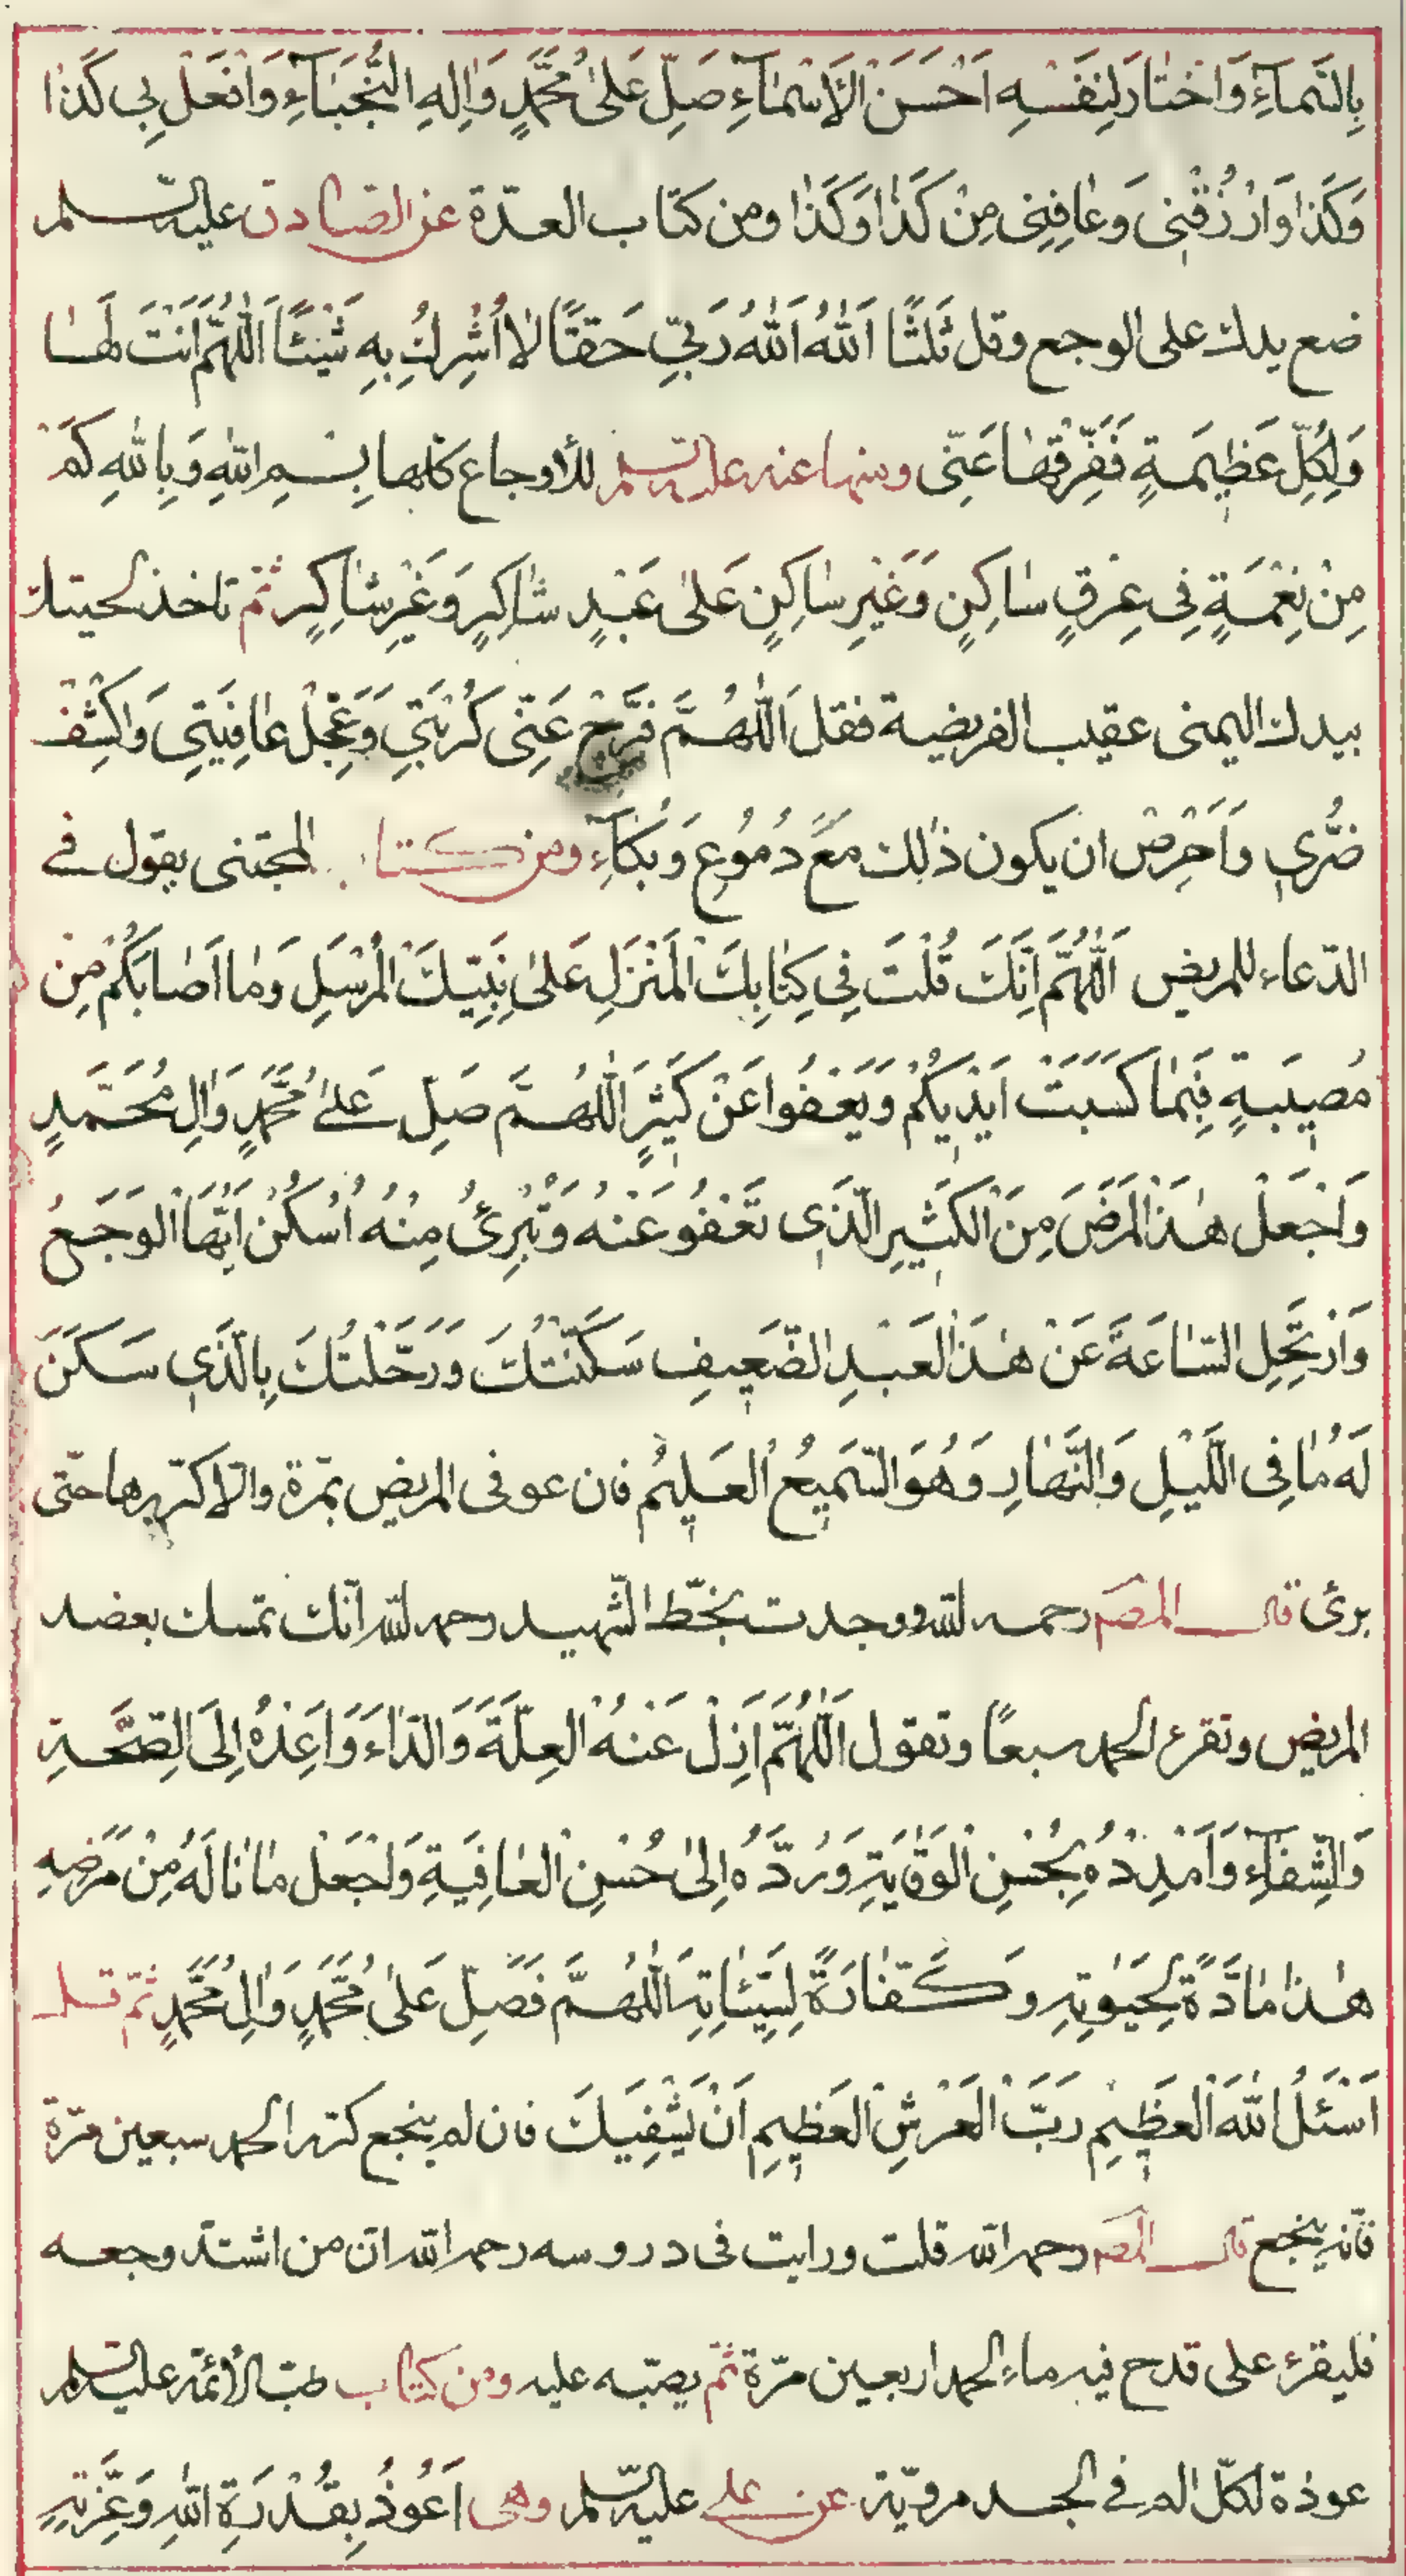 بِالسَّمَآءِ وَاخْتَارَ لِنَفْسِهِ اَحْسَنَ الْاَسْمَآءِ صَلِّ عَلٰى مُحَمَّدٍ وَاٰلِهِ النُّجَبَآءِ وَافْعَلْ بِي كَذَا
وَكَذَا وَارْزُقْنِي وَعَافِنِي مِنْ كَذَا وَكَذَا ومن كتاب العدّة عن الصّادق عليه السّلم
ضع يدك على الوجع وقل ثَلثًا اَللّٰهُ اَللّٰهُ رَبِّي حَقًّا لَا اُشْرِكُ بِهِ شَيْئًا اَللّٰهُمَّ اَنْتَ لَهَا
وَلِكُلِّ عَظِيمَةٍ فَفَرِّقْهَا عَنِّي ومنها عنه عليه السّلم للأوجاع كلّها بِسْمِ اللّٰهِ وَبِاللّٰهِ كَمْ
مِنْ نِعْمَةٍ فِي عِرْقٍ سَاكِنٍ وَغَيْرِ سَاكِنٍ عَلٰى عَبْدٍ شَاكِرٍ وَغَيْرِ شَاكِرٍ ثمّ تاخذ لحيتك
بيدك اليمنى عقيب الفريضة فقل اَللّٰهُمَّ فَرِّجْ عَنِّي كُرْبَتِي وَعَجِّلْ عَافِيَتِي وَاكْشِفْ
ضُرِّي وَاَحْرِصْ ان يكون ذٰلك مَعَ دُمُوعٍ وَبُكَآءٍ ومن كتا المجتنى يقول في
الدّعاء للمريض اَللّٰهُمَّ اِنَّكَ قُلْتَ فِي كِتَابِكَ الْمُنْزَلِ عَلٰى نَبِيِّكَ الْمُرْسَلِ وَمَا اَصَابَكُمْ مِنْ
مُصِيبَةٍ فَبِمَا كَسَبَتْ اَيْدِيكُمْ وَيَعْفُوا عَنْ كَثِيرٍ اَللّٰهُمَّ صَلِّ عَلٰى مُحَمَّدٍ وَاٰلِ مُحَمَّدٍ
وَاجْعَلْ هٰذَا الْمَرَضَ مِنَ الْكَثِيرِ الَّذِي تَعْفُو عَنْهُ وَتُبْرِئُ مِنْهُ اُسْكُنْ اَيُّهَا الْوَجَعُ
وَارْتَحِلِ السَّاعَةَ عَنْ هٰذَا الْعَبْدِ الضَّعِيفِ سَكَّنْتُكَ وَرَحَّلْتُكَ بِالَّذِي سَكَنَ
لَهُ مَا فِي اللَّيْلِ وَالنَّهَارِ وَهُوَ السَّمِيعُ الْعَلِيمُ فان عوفى المريض بمرّة والّا كرّرها حتّى
برئ قال المصَ رحمه اللّه ووجدت بخطّ الشّهيد رحمه اللّه انّك تمسك بعضد
المريض وتقرء الحمد سبعًا وتقول اَللّٰهُمَّ اَزِلْ عَنْهُ الْعِلَّةَ وَالدَّاءَ وَاَعِدْهُ اِلَى الصِّحَّةِ
وَالشِّفَآءِ وَاَمْدِدْهُ بِحُسْنِ الْوَقَايَةِ وَرُدَّهُ اِلٰى حُسْنِ الْعَافِيَةِ وَاجْعَلْ مَا نَالَهُ مِنْ مَرَضِهِ
هٰذَا مَادَّةً لِحَيٰوتِهِ وَكَفَّارَةً لِسَيِّئَاتِهِ اَللّٰهُمَّ فَصَلِّ عَلٰى مُحَمَّدٍ وَاٰلِ مُحَمَّدٍ ثمّ قل
اَسْئَلُ اللّٰهَ الْعَظِيمِ رَبَّ الْعَرْشِ الْعَظِيمِ اَنْ يَشْفِيَكَ فان لم ينجع كرّر الحمد سبعين مرّة
فانّه ينجع قال المصَ رحمه اللّه قلت ورايت فى دروسه رحمه اللّه انّ من اشتدّ وجعه
فليقرء على قدح فيه ماء الحمد اربعين مرّة ثمّ يصبّه عليه ومن كتاب طبّ الأئمّة عليه السّلم
عوذة لكلّ الم في الجسد مرويّة عن علي عليه السّلم وهى اَعُوذُ بِقُدْرَةِ اللّٰهِ وَعِزَّتِهِ